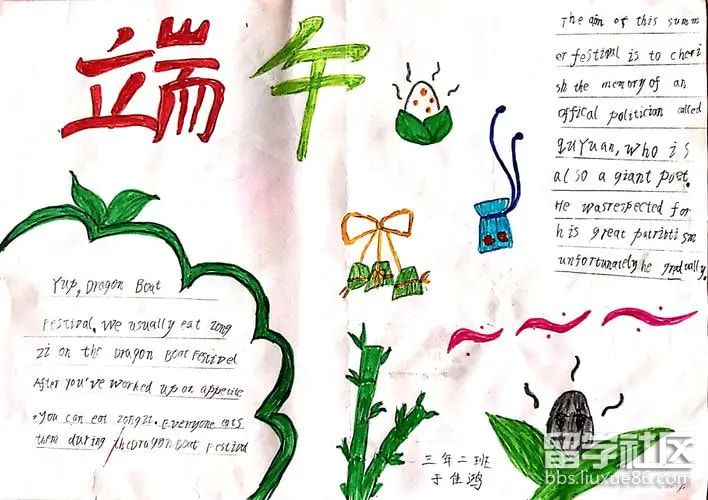 端午
The aim of this summ
er festival is to cheri
sh the memory of an
offical politician called
quYuan, who is
also a giant poet.
He wasrespected for
his great patriotism
unfortunately he gradually.
Yup, Dragon Boat
Festival, we usually eat zong
zi on the Dragon Boat Festivel
After you've worked up an appetite
.You can eat zongzi. Everyone eats
them during theDragon Boat Festival
三年二班
于佳鸿
留学社区
bbs.liuxue86.com